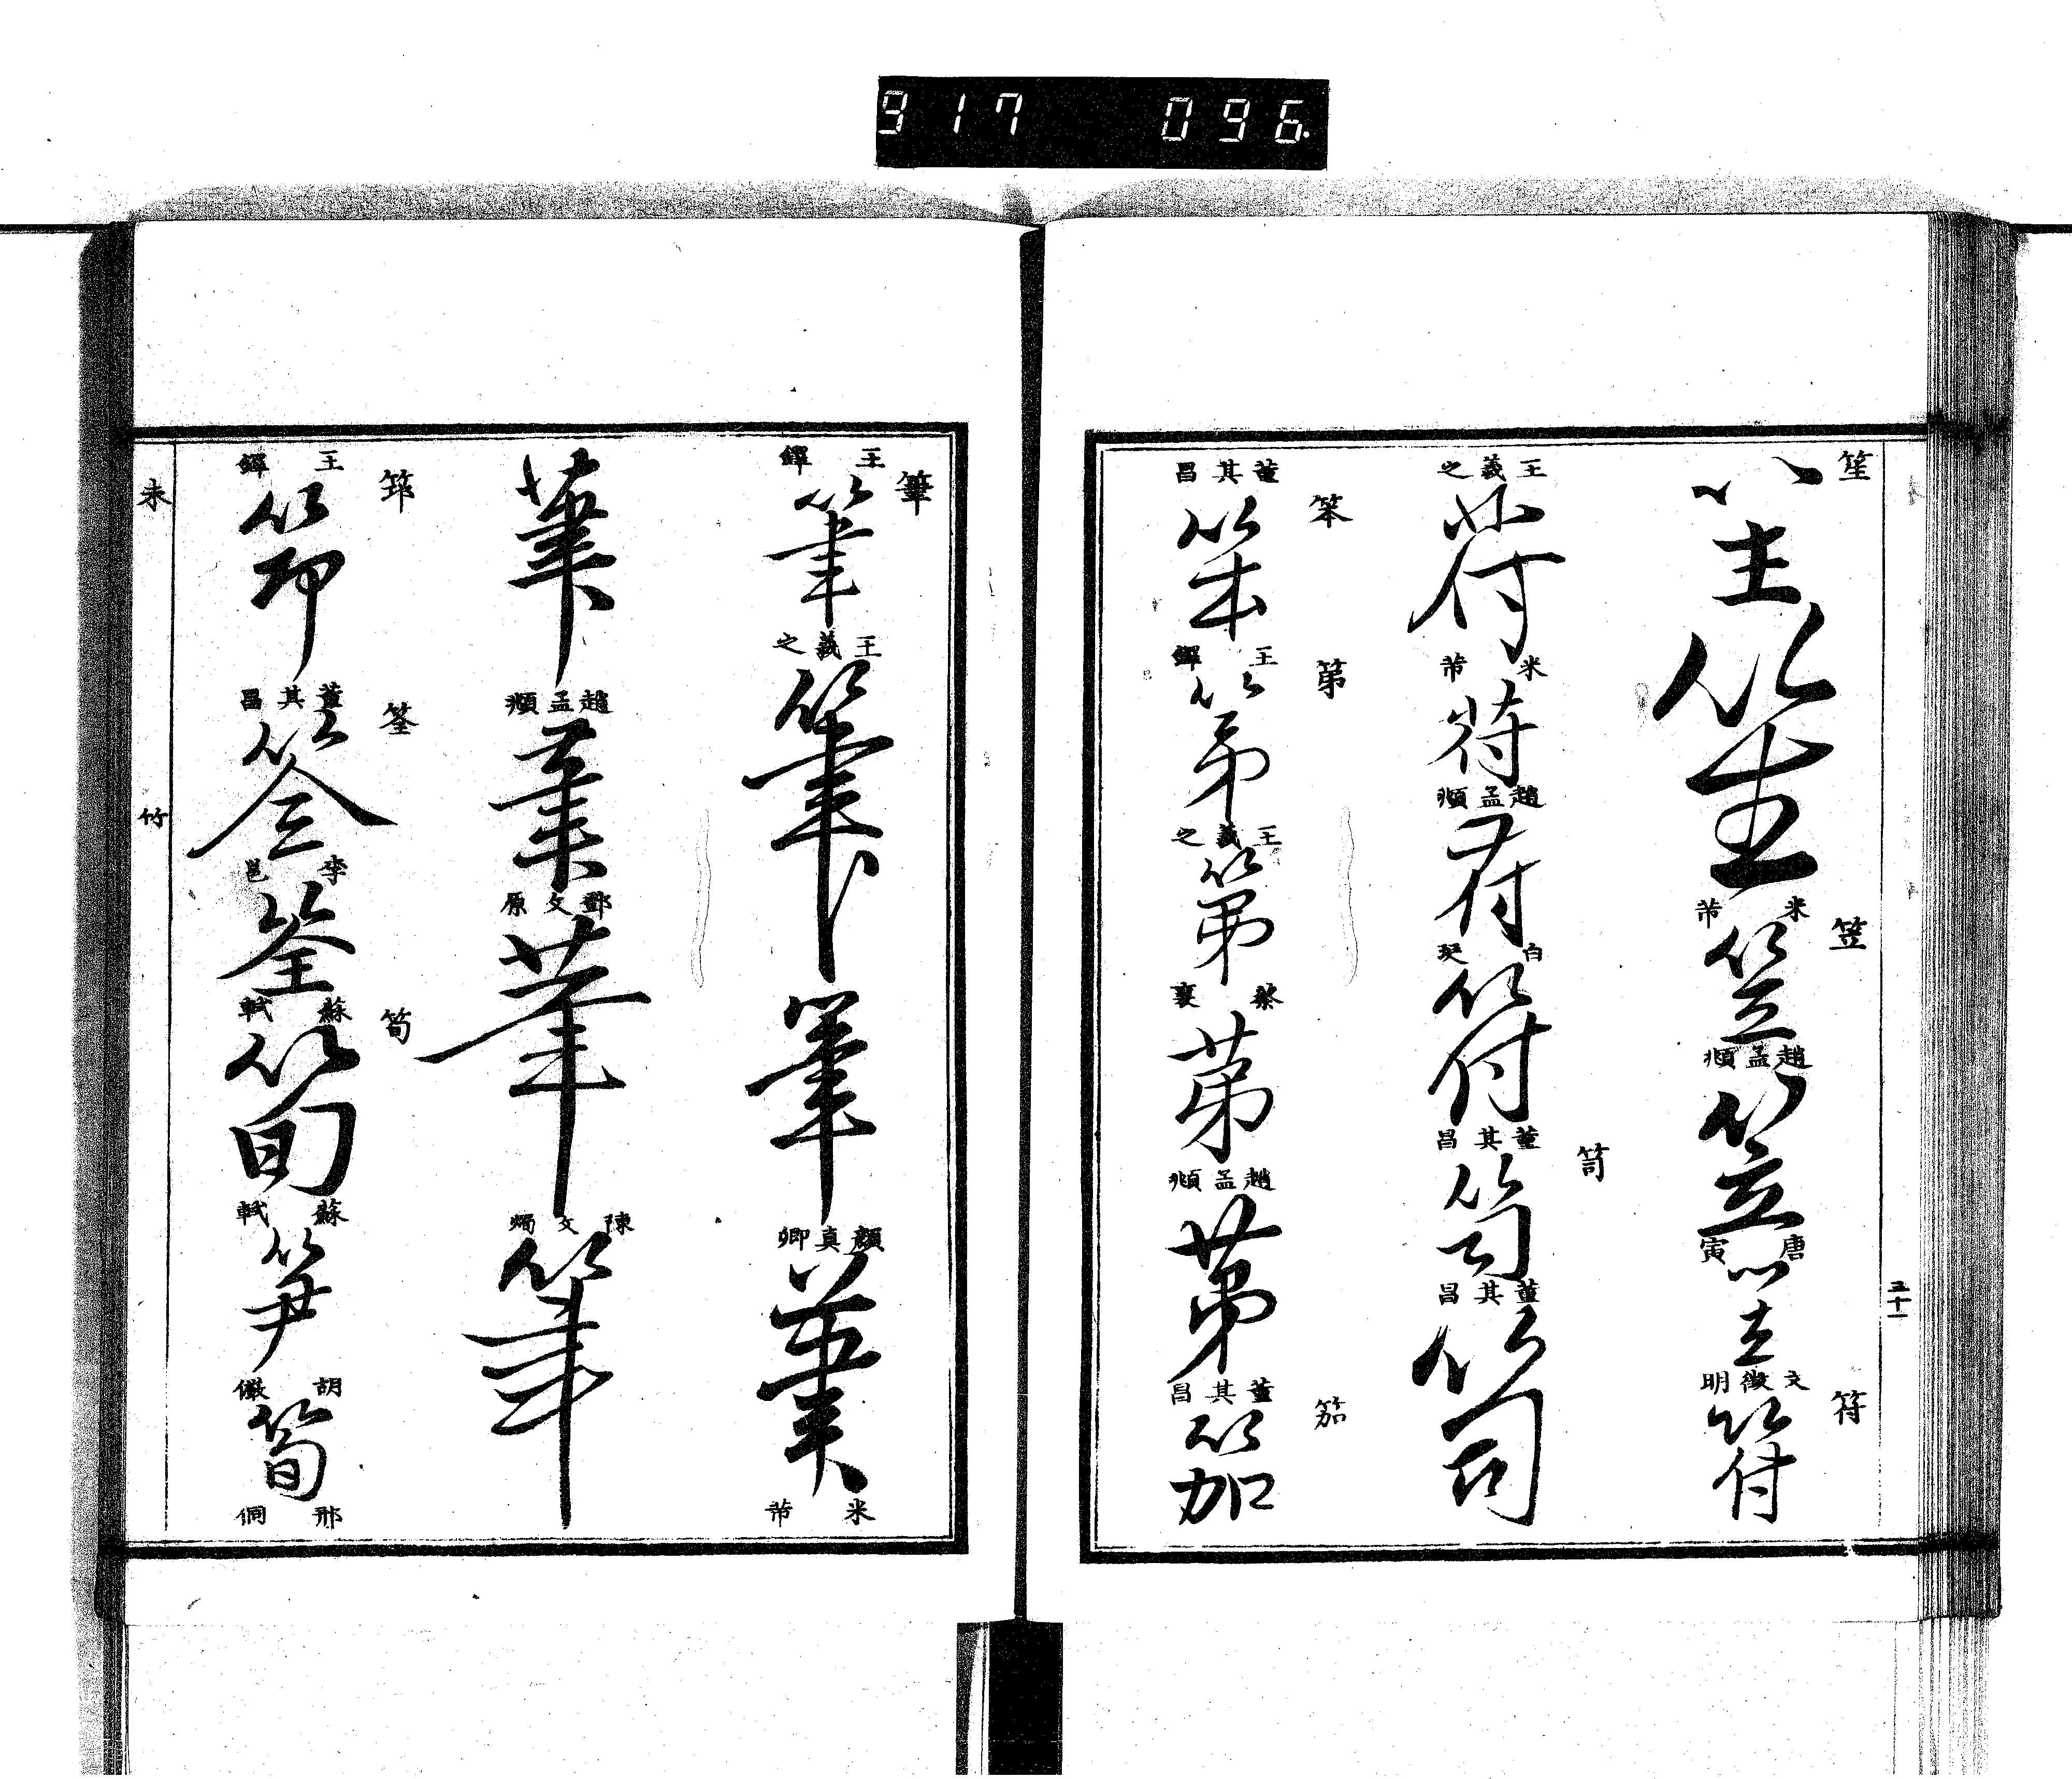 917 096
笙
笙
笙
米芾
笠
笠
趙孟頫
笠
唐寅
笠
文徵明
符
符
五十一
王羲之
符
米芾
符
趙孟頫
符
白玊
符
董其昌
笥
笥
董其昌
笥
董其昌
笨
笨
王鐸
第
第
王羲之
第
蔡襄
第
趙孟頫
第
董其昌
笳
笳
王鐸
筆
筆
王羲之
筆
筆
顏真卿
筆
米芾
筆
趙孟頫
筆
鄧文原
筆
陳文燭
筆
王鐸
筇
筇
董其昌
筌
筌
李邕
筌
蘇軾
筍
筍
蘇軾
笋
胡儼
筍
邢侗
未
竹